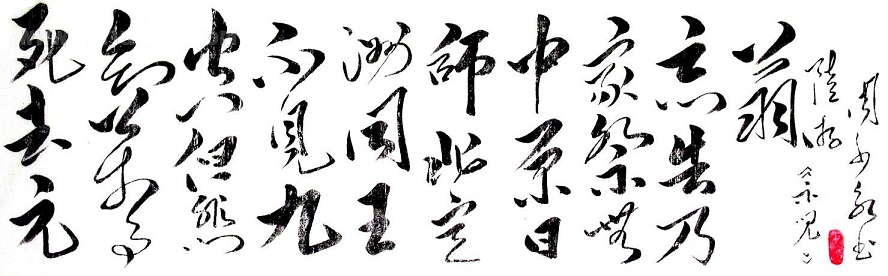 死去元
知萬事
空但悲
不見九
洲同王
師北定
中原日
家祭無
忘告乃
翁
陸游《示兒》
周永